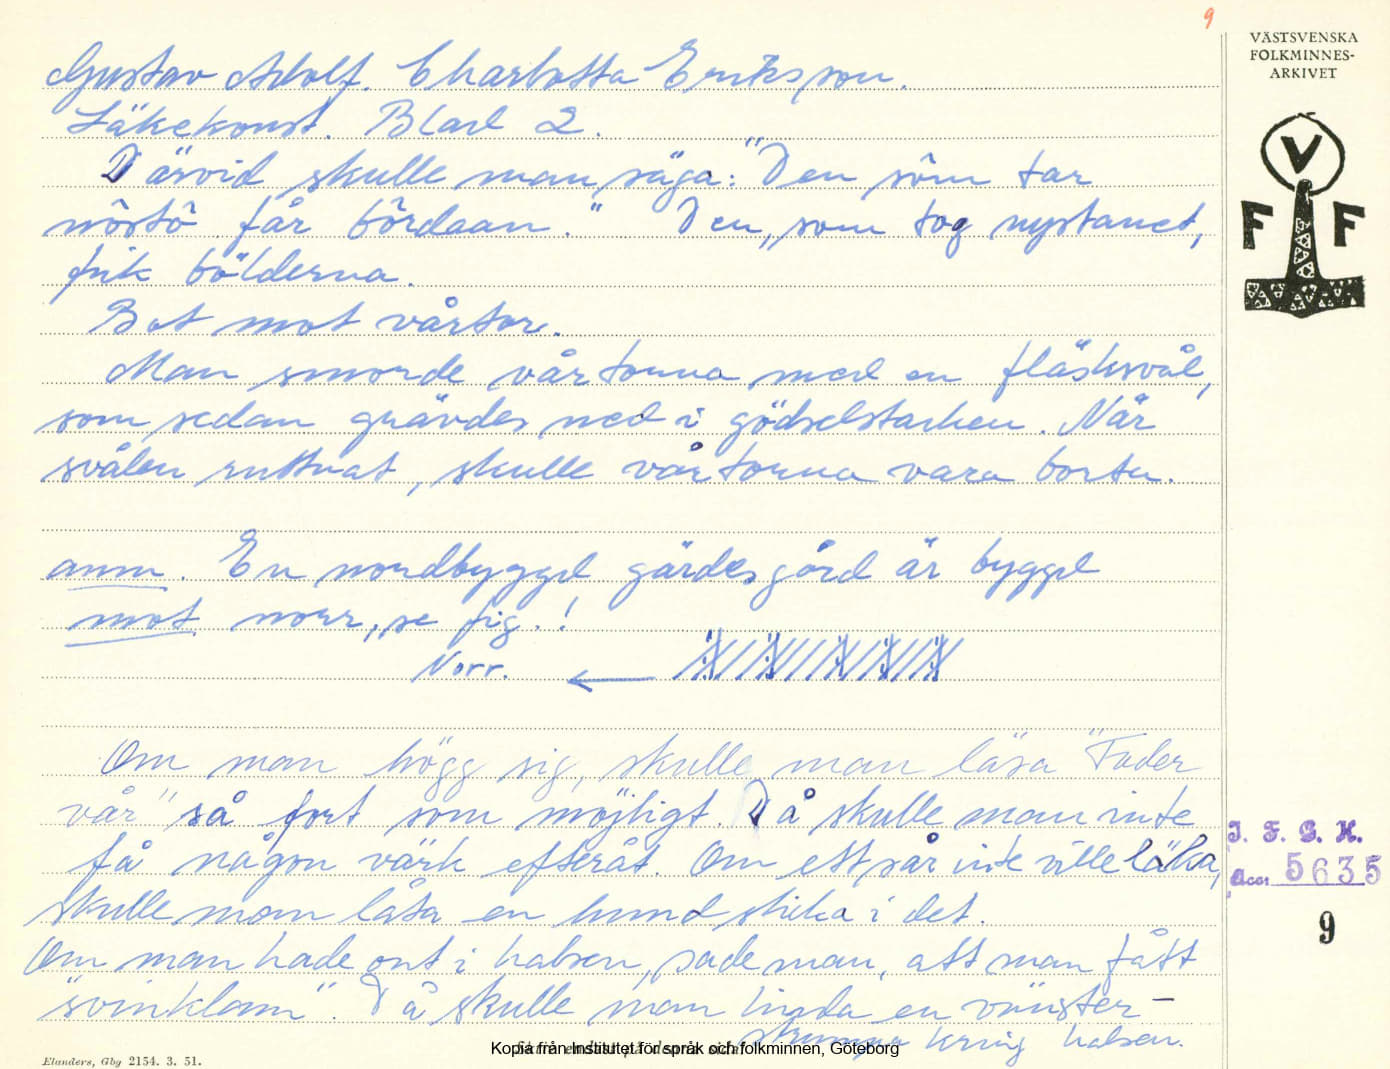 9
VÄSTSVENSKA
FOLKMINNES-
ARKIVET
V
F F
Gustav Adolf. Charlotta Eriksson.
Läkekonst. Blad 2.
Därvid skulle man säga: "Den sôm tar
nôstô får bôrdaan." Den, som tog nystanet,
fick bölderna.
Bot mot vårtor.
Man smorde vårtorna med en fläsksvål,
som sedan grävdes ned i gödselstacken. När
svålen ruttnat, skulle vårtorna vara borta.
anm. En nordbyggd gärdesgård är byggd
mot norr, se fig.!
Norr.
Om man högg sig, skulle man läsa "Fader
vår" så fort som möjligt. Då skulle man inte
få någon värk efteråt. Om ett sår inte ville läka,
skulle man låta en hund slicka i det.
Om man hade ont i halsen, sade man, att man fått
"svinklam". Då skulle man linda en vänster-
strumpa kring halsen.
I. F. G. H.
Acc. 5635
9
Elanders, Gbg 2154. 3. 51.
Kopia från Institutet för språk och folkminnen, Göteborg